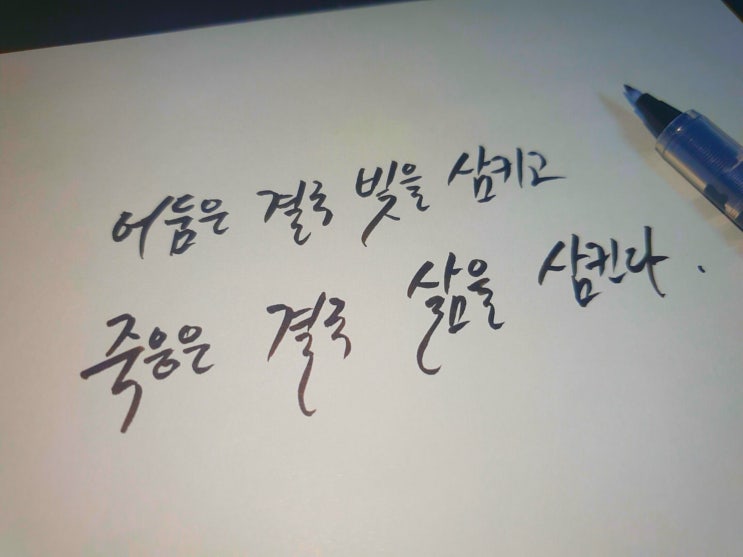 어둠은 결국 빛을 삼키고
죽음은 결국 삶을 삼킨다.